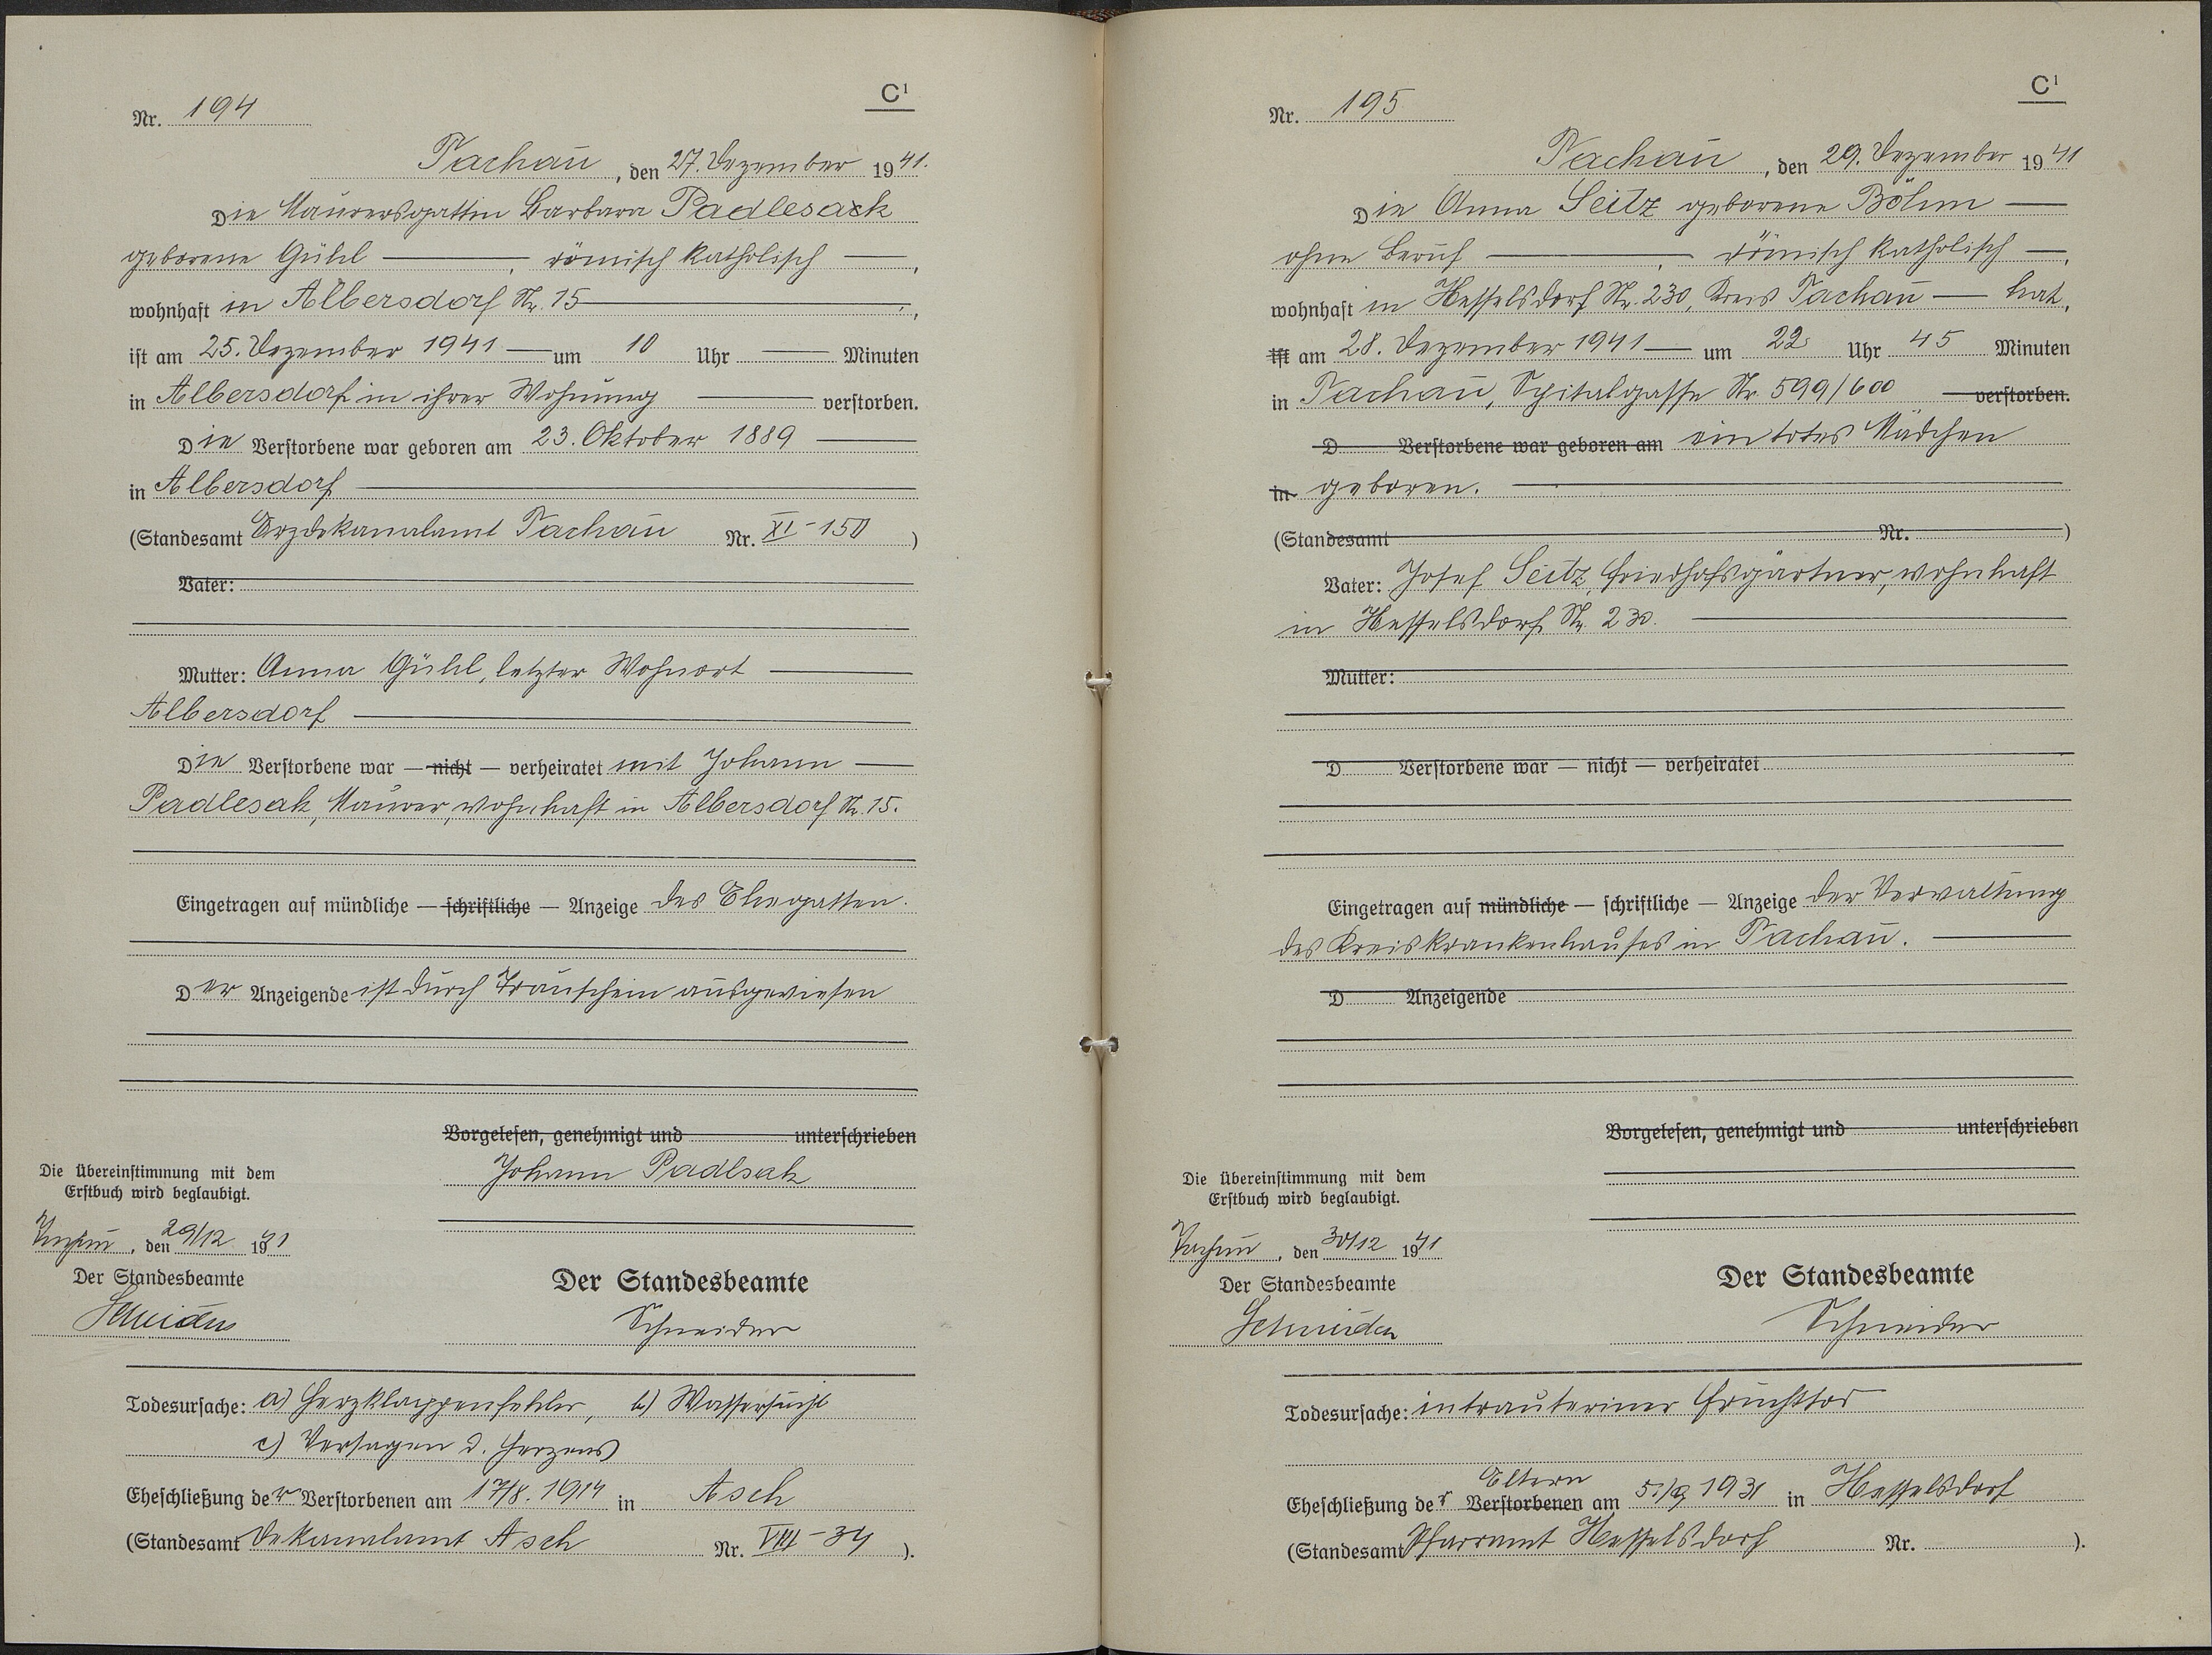 C¹
Nr. 194
Tachau, den 27. Dezember 1941.
Die Maurersgattin Barbara Padlesack
geborene Gühl —, römisch katholisch —,
wohnhaft in Albersdorf Nr. 15 —,
ist am 25. Dezember 1941 — um 10 Uhr — Minuten
in Albersdorf in ihrer Wohnung — verstorben.
Die Verstorbene war geboren am 23. Oktober 1889 —
in Albersdorf —
(Standesamt Erzdekanalamt Tachau Nr. XI-150)
Vater:
Mutter: Anna Gühl, letzter Wohnort —
Albersdorf —
Die Verstorbene war — nicht — verheiratet mit Johann —
Padlesak, Maurer, wohnhaft in Albersdorf Nr. 15.
Eingetragen auf mündliche — schriftliche — Anzeige des Ehegatten.
Der Anzeigende ist durch Trauschein ausgewiesen
Vorgelesen, genehmigt und unterschrieben
Johann Padlsak
Die Übereinstimmung mit dem
Erstbuch wird beglaubigt.
Tachau, den 29/12 1941
Der Standesbeamte
Schneider
Der Standesbeamte
Schneider
Todesursache: a) Herzklappenfehler, b) Wassersucht
c) Versagen d. Herzens
Eheschließung der Verstorbenen am 17/8. 1914 in Asch
(Standesamt Dekanalamt Asch Nr. VIII-34).
C¹
Nr. 195
Tachau, den 29. Dezember 1941
Die Anna Seitz geborene Böhm —
ohne Beruf —, — römisch katholisch —,
wohnhaft in Hesselsdorf Nr. 230, Kreis Tachau — hat,
ist am 28. Dezember 1941 — um 22 Uhr 45 Minuten
in Tachau, Spitalgasse Nr. 599/600 — verstorben.
D Verstorbene war geboren am ein totes Mädchen
in geboren. —
(Standesamt Nr. )
Vater: Josef Seitz, Friedhofsgärtner, wohnhaft
in Hesselsdorf Nr. 230. —
Mutter:
D Verstorbene war — nicht — verheiratet
Eingetragen auf mündliche — schriftliche — Anzeige der Verwaltung
des Kreiskrankenhauses in Tachau. —
D Anzeigende
Vorgelesen, genehmigt und unterschrieben
Die Übereinstimmung mit dem
Erstbuch wird beglaubigt.
Tachau, den 30/12 1941
Der Standesbeamte
Schneider
Der Standesbeamte
Schneider
Todesursache: intrauteriner Fruchttod
Eltern
Eheschließung der Verstorbenen am 5./9 1931 in Hesselsdorf
(Standesamt Pfarramt Hesselsdorf Nr. ).